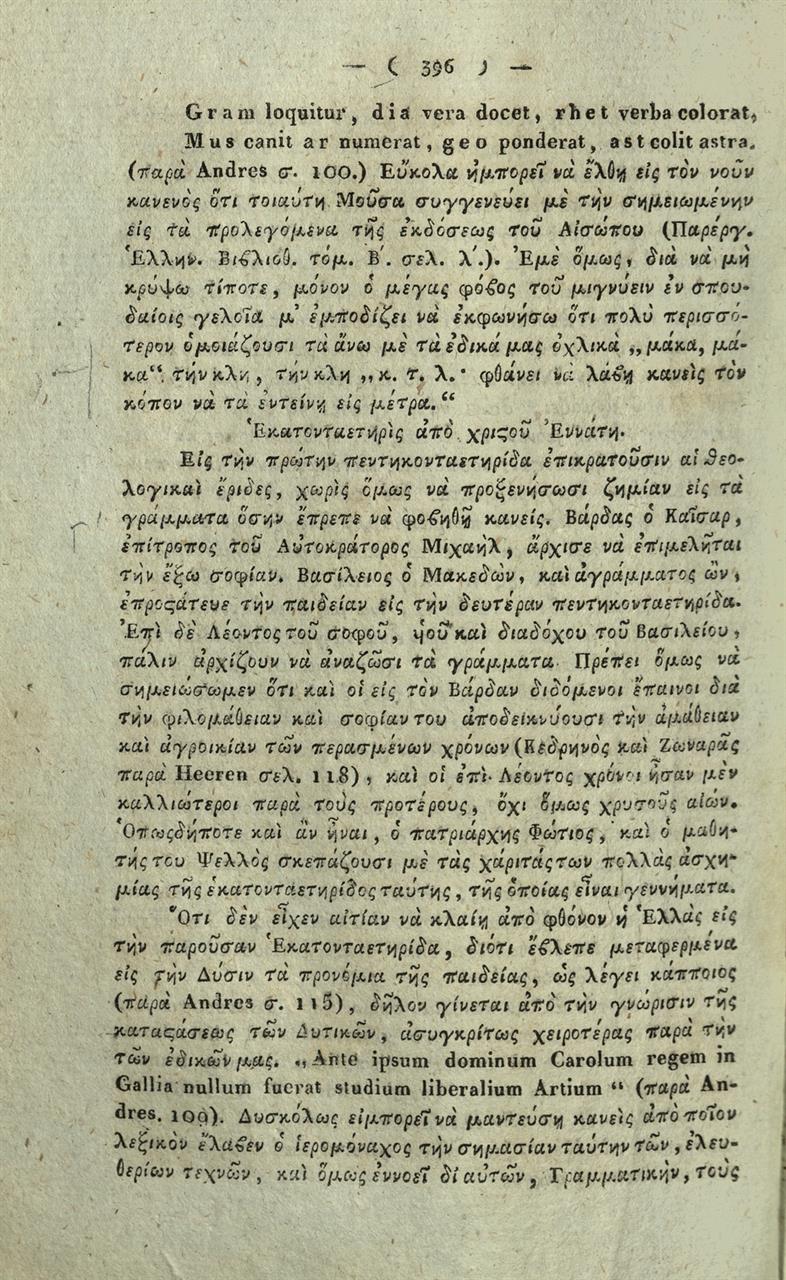 — ( 396 ) —
Gram loquitur, dia vera docet, rhet verba colorat,
Mus canit ar numerat, geo ponderat, ast colit astra.
(παρὰ Andres σ. 100.) Εὔκολα ἠμπορεῖ νὰ ἔλθῃ εἰς τὸν νοῦν
κανενὸς ὅτι τοιαύτη Μοῦσα συγγενεύει μὲ τὴν σημειωμένην
εἰς τὰ προλεγόμενα τῆς ἐκδόσεως τοῦ Αἰσώπου (Παρέργ.
Ἑλλην. Βιβλιοθ. τόμ. Β΄. σελ. λ΄.). Ἐμὲ ὅμως, διὰ νὰ μὴ
κρύψω τίποτε, μόνον ὁ μέγας φόβος τοῦ μιγνύειν ἐν σπου-
δαίοις γελοῖα μ' ἐμποδίζει νὰ ἐκφωνήσω ὅτι πολὺ περισσό-
τερον ὁμοιάζουσι τὰ ἄνω μὲ τὰ ἐδικά μας ὀχλικὰ „μάκα, μά-
κα“. τὴν κλη, τὴν κλη „κ. τ. λ.· φθάνει νὰ λάβῃ κανεὶς τὸν
κόπον νὰ τὰ ἐντείνῃ εἰς μέτρα.“
Ἑκατονταετηρὶς ἀπὸ χριϛοῦ Ἐννάτη.
Εἰς τὴν πρώτην πεντηκονταετηρίδα ἐπικρατοῦσιν αἱ θεο-
λογικαὶ ἔριδες, χωρὶς ὅμως νὰ προξενήσωσι ζημίαν εἰς τὰ
γράμματα ὅσην ἔπρεπε νὰ φοβηθῇ κανείς. Βάρδας ὁ Καῖσαρ,
ἐπίτροπος τοῦ Αὐτοκράτορος Μιχαὴλ, ἄρχισε νὰ ἐπιμελῆται
τὴν ἔξω σοφίαν. Βασίλειος ὁ Μακεδὼν, καὶ ἀγράμματος ὢν,
ἐπροϛάτευε τὴν παιδείαν εἰς τὴν δευτέραν πεντηκονταετηρίδα.
Ἐπὶ δὲ Λέοντος τοῦ σοφοῦ, υἱοῦ καὶ διαδόχου τοῦ Βασιλείου,
πάλιν ἀρχίζουν νὰ ἀναζῶσι τὰ γράμματα. Πρέπει ὅμως νὰ
σημειώσωμεν ὅτι καὶ οἱ εἰς τὸν Βάρδαν διδόμενοι ἔπαινοι διὰ
τὴν φιλομάθειαν καὶ σοφίαν του ἀποδεικνύουσι τὴν ἀμάθειαν
καὶ ἀγροικίαν τῶν περασμένων χρόνων (Κεδρηνὸς καὶ Ζωναρᾶς
παρὰ Heeren σελ. 118), καὶ οἱ ἐπὶ Λέοντος χρόνοι ἦσαν μὲν
καλλιώτεροι παρὰ τοὺς προτέρους, ὄχι ὅμως χρυσοῦς αἰών.
Ὁπωςδήποτε καὶ ἂν ἦναι, ὁ πατριάρχης Φώτιος, καὶ ὁ μαθη-
τής του Ψελλὸς σκεπάζουσι μὲ τὰς χάριτάς των πολλὰς ἀσχη-
μίας τῆς ἑκατονταετηρίδος ταύτης, τῆς ὁποίας εἶναι γεννήματα.
Ὅτι δὲν εἶχεν αἰτίαν νὰ κλαίῃ ἀπὸ φθόνον ἡ Ἑλλὰς εἰς
τὴν παροῦσαν Ἑκατονταετηρίδα, διότι ἔβλεπε μεταφερμένα
εἰς τὴν Δύσιν τὰ προνόμια τῆς παιδείας, ὡς λέγει κάπποιος
(παρὰ Andres σ. 115), δῆλον γίνεται ἀπὸ τὴν γνώρισιν τῆς
καταϛάσεως τῶν Δυτικῶν, ἀσυγκρίτως χειροτέρας παρὰ τὴν
τῶν ἐδικῶν μας. „Ante ipsum dominum Carolum regem in
Gallia nullum fuerat studium liberalium Artium“ (παρὰ An-
dres. 109). Δυσκόλως εἰμπορεῖ νὰ μαντεύσῃ κανεὶς ἀπὸ ποῖον
λεξικὸν ἔλαβεν ὁ ἱερομόναχος τὴν σημασίαν ταύτην τῶν, ἐλευ-
θερίων τεχνῶν, καὶ ὅμως ἐννοεῖ δι' αὐτῶν, Γραμματικὴν, τοὺς